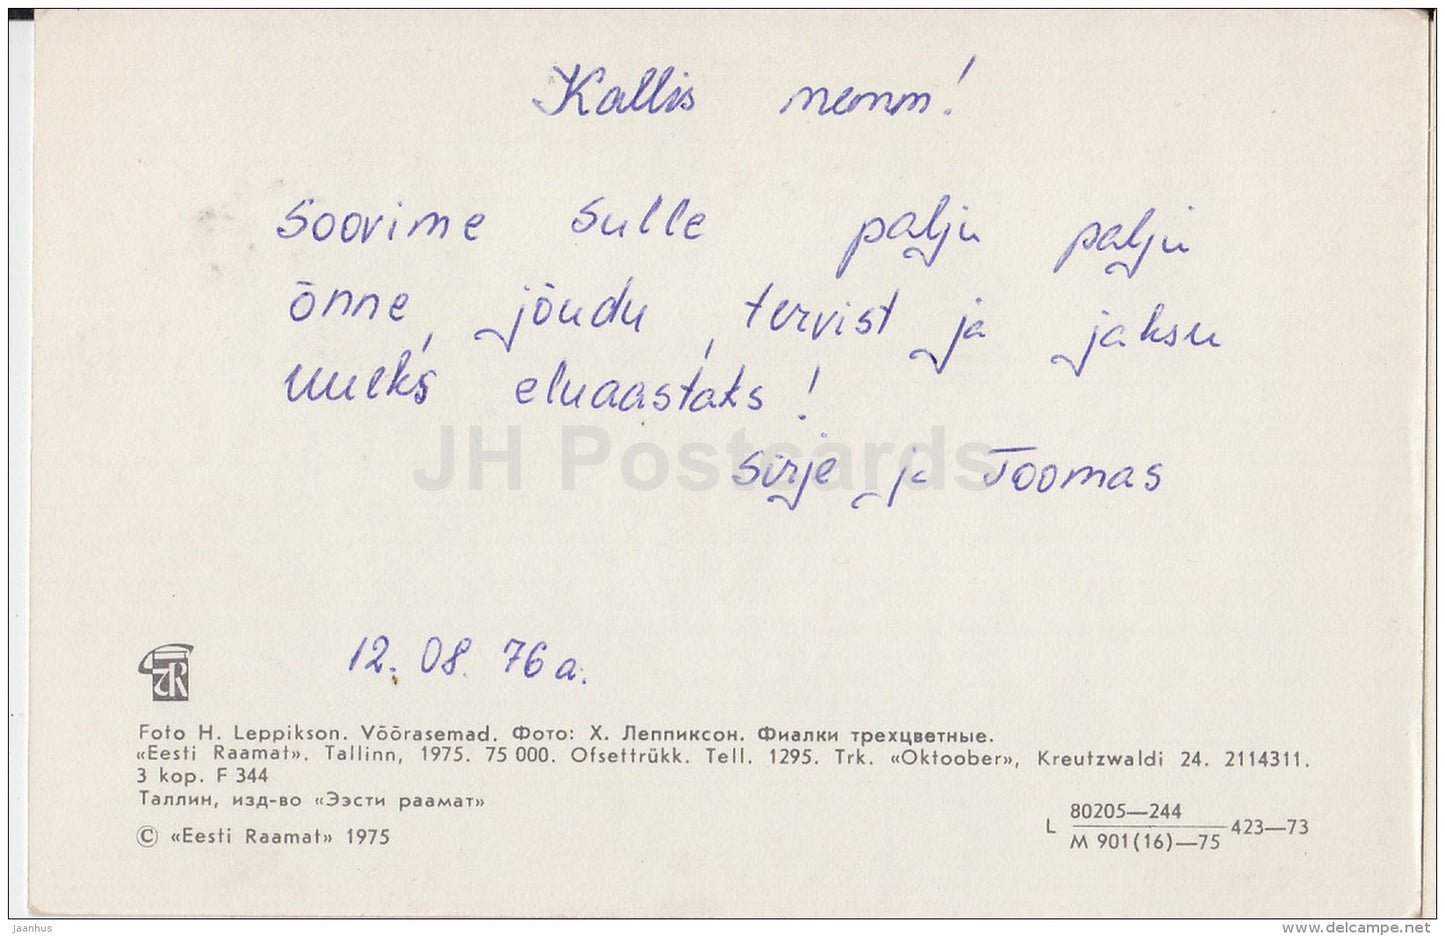 Kallis nemm!
Soovime Sulle palju palju
õnne, jõudu, tervist ja jaksu
uueks eluaastaks!
Sirje ja Toomas
JH Postcards
12. 08. 76 a.
Foto H. Leppikson. Võõrasemad. Фото: Х. Леппиксон. Фиалки трехцветные.
«Eesti Raamat». Tallinn, 1975. 75 000. Ofsettrükk. Tell. 1295. Trk. «Oktoober», Kreutzwaldi 24. 2114311.
3 kop. F 344
Таллин, изд-во «Ээсти раамат»
© «Eesti Raamat» 1975
L 80205—244
M 901(16)—75 423—73
jaanhus
www.delcampe.net